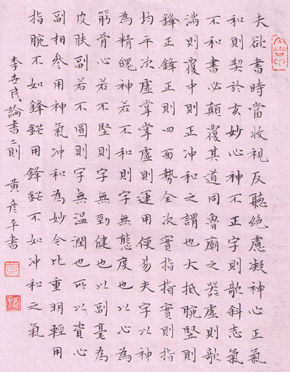 夫欲書時當收視反聽絕慮凝神心正氣
和則契於玄妙心神不正字則敧斜志氣
不和書必顛覆其道同魯廟之器虛則敧
滿則覆正則沖和之謂也大抵腕竪則
鋒正鋒正則四面勢全次實指指實則指
均平次虛掌掌虛則運用便易夫字以神
為精魄神若不和則字無態度也以心為
筋骨心若不堅則字無勁健也以副毫為
皮膚副若不圓則字無溫潤也所以資心
副相參用神氣沖和為妙今比重明輕用
指腕不如鋒鋩用鋒鋩不如沖和之氣
李世民論書二則 黃彥平書